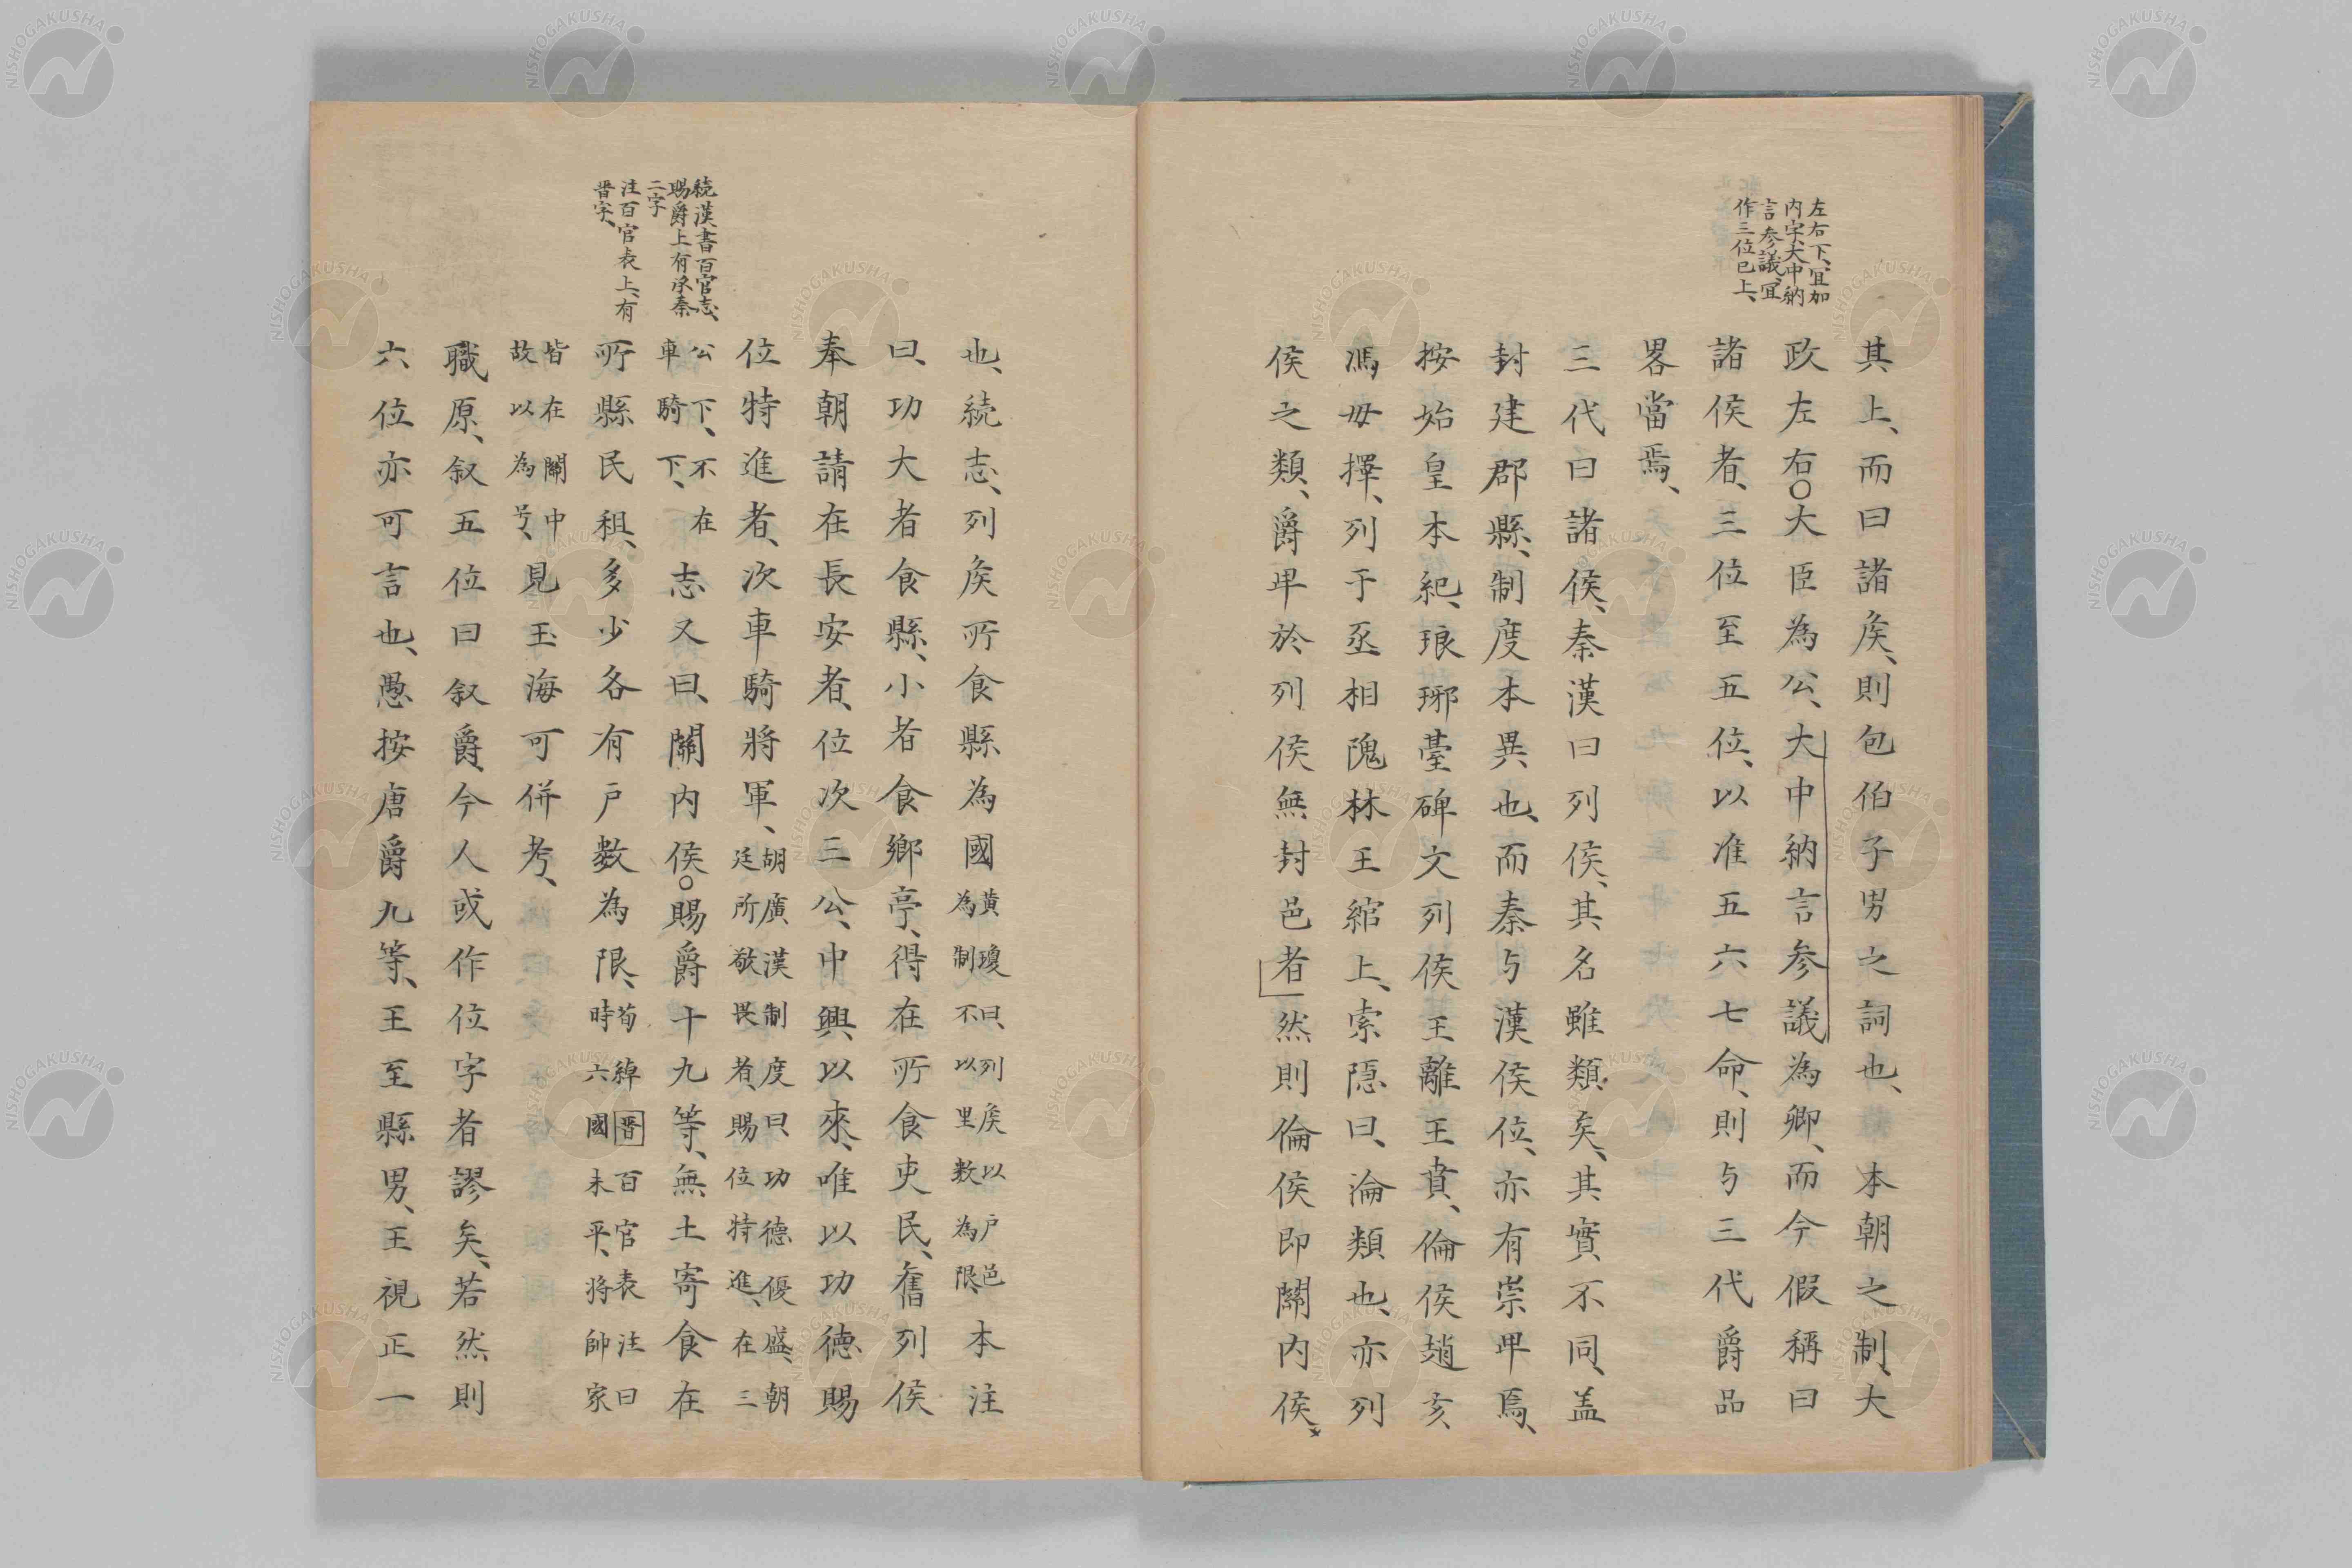 左右下、宜加
内字、大中納
言参議、宜
作三位已上、
其上、而曰諸矦、則包伯子男之詞也、本朝之制、大
政左右○大臣為公、大中納言参議為卿、而今假稱曰
諸侯者、三位至五位、以准五六七命、則与三代爵品
畧當焉、
三代曰諸侯、秦漢曰列侯、其名雖類矣、其實不同、盖
封建郡縣、制度本異也、而秦与漢侯位、亦有崇卑焉、
按始皇本紀、琅琊臺碑文列侯王離王賁、倫侯趙亥
馮毋擇、列于丞相隗林王綰上、索隠曰、淪類也、亦列
侯之類、爵卑於列侯無封邑者然則倫侯即關内侯、
続漢書百官志、
賜爵上有承秦
二字
注百官表上、有
晋字、
也、続志、列矦所食縣為國黄瓊曰、列矦以戸邑
為制不以里数為限、本注
曰、功大者食縣、小者食鄉亭、得在所食吏民、舊列侯
奉朝請在長安者、位次三公、中興以來、唯以功德賜
位特進者、次車騎將軍、胡廣漢制度曰功德優盛、朝
廷所敬畏者、賜位特進、在三
公下、不在
車騎下、志又曰、關内侯○賜爵十九等、無土寄食在
所縣民租、多少各有戸數為限、荀綽晋百官表注曰
時六國未平、将帥家
皆在關中
故以為号、見玉海可併考、
職原、叙五位曰叙爵、今人或作位字者謬矣、若然則
六位亦可言也、愚按唐爵九等、王至縣男、王視正一
NISHOGAKUSHA